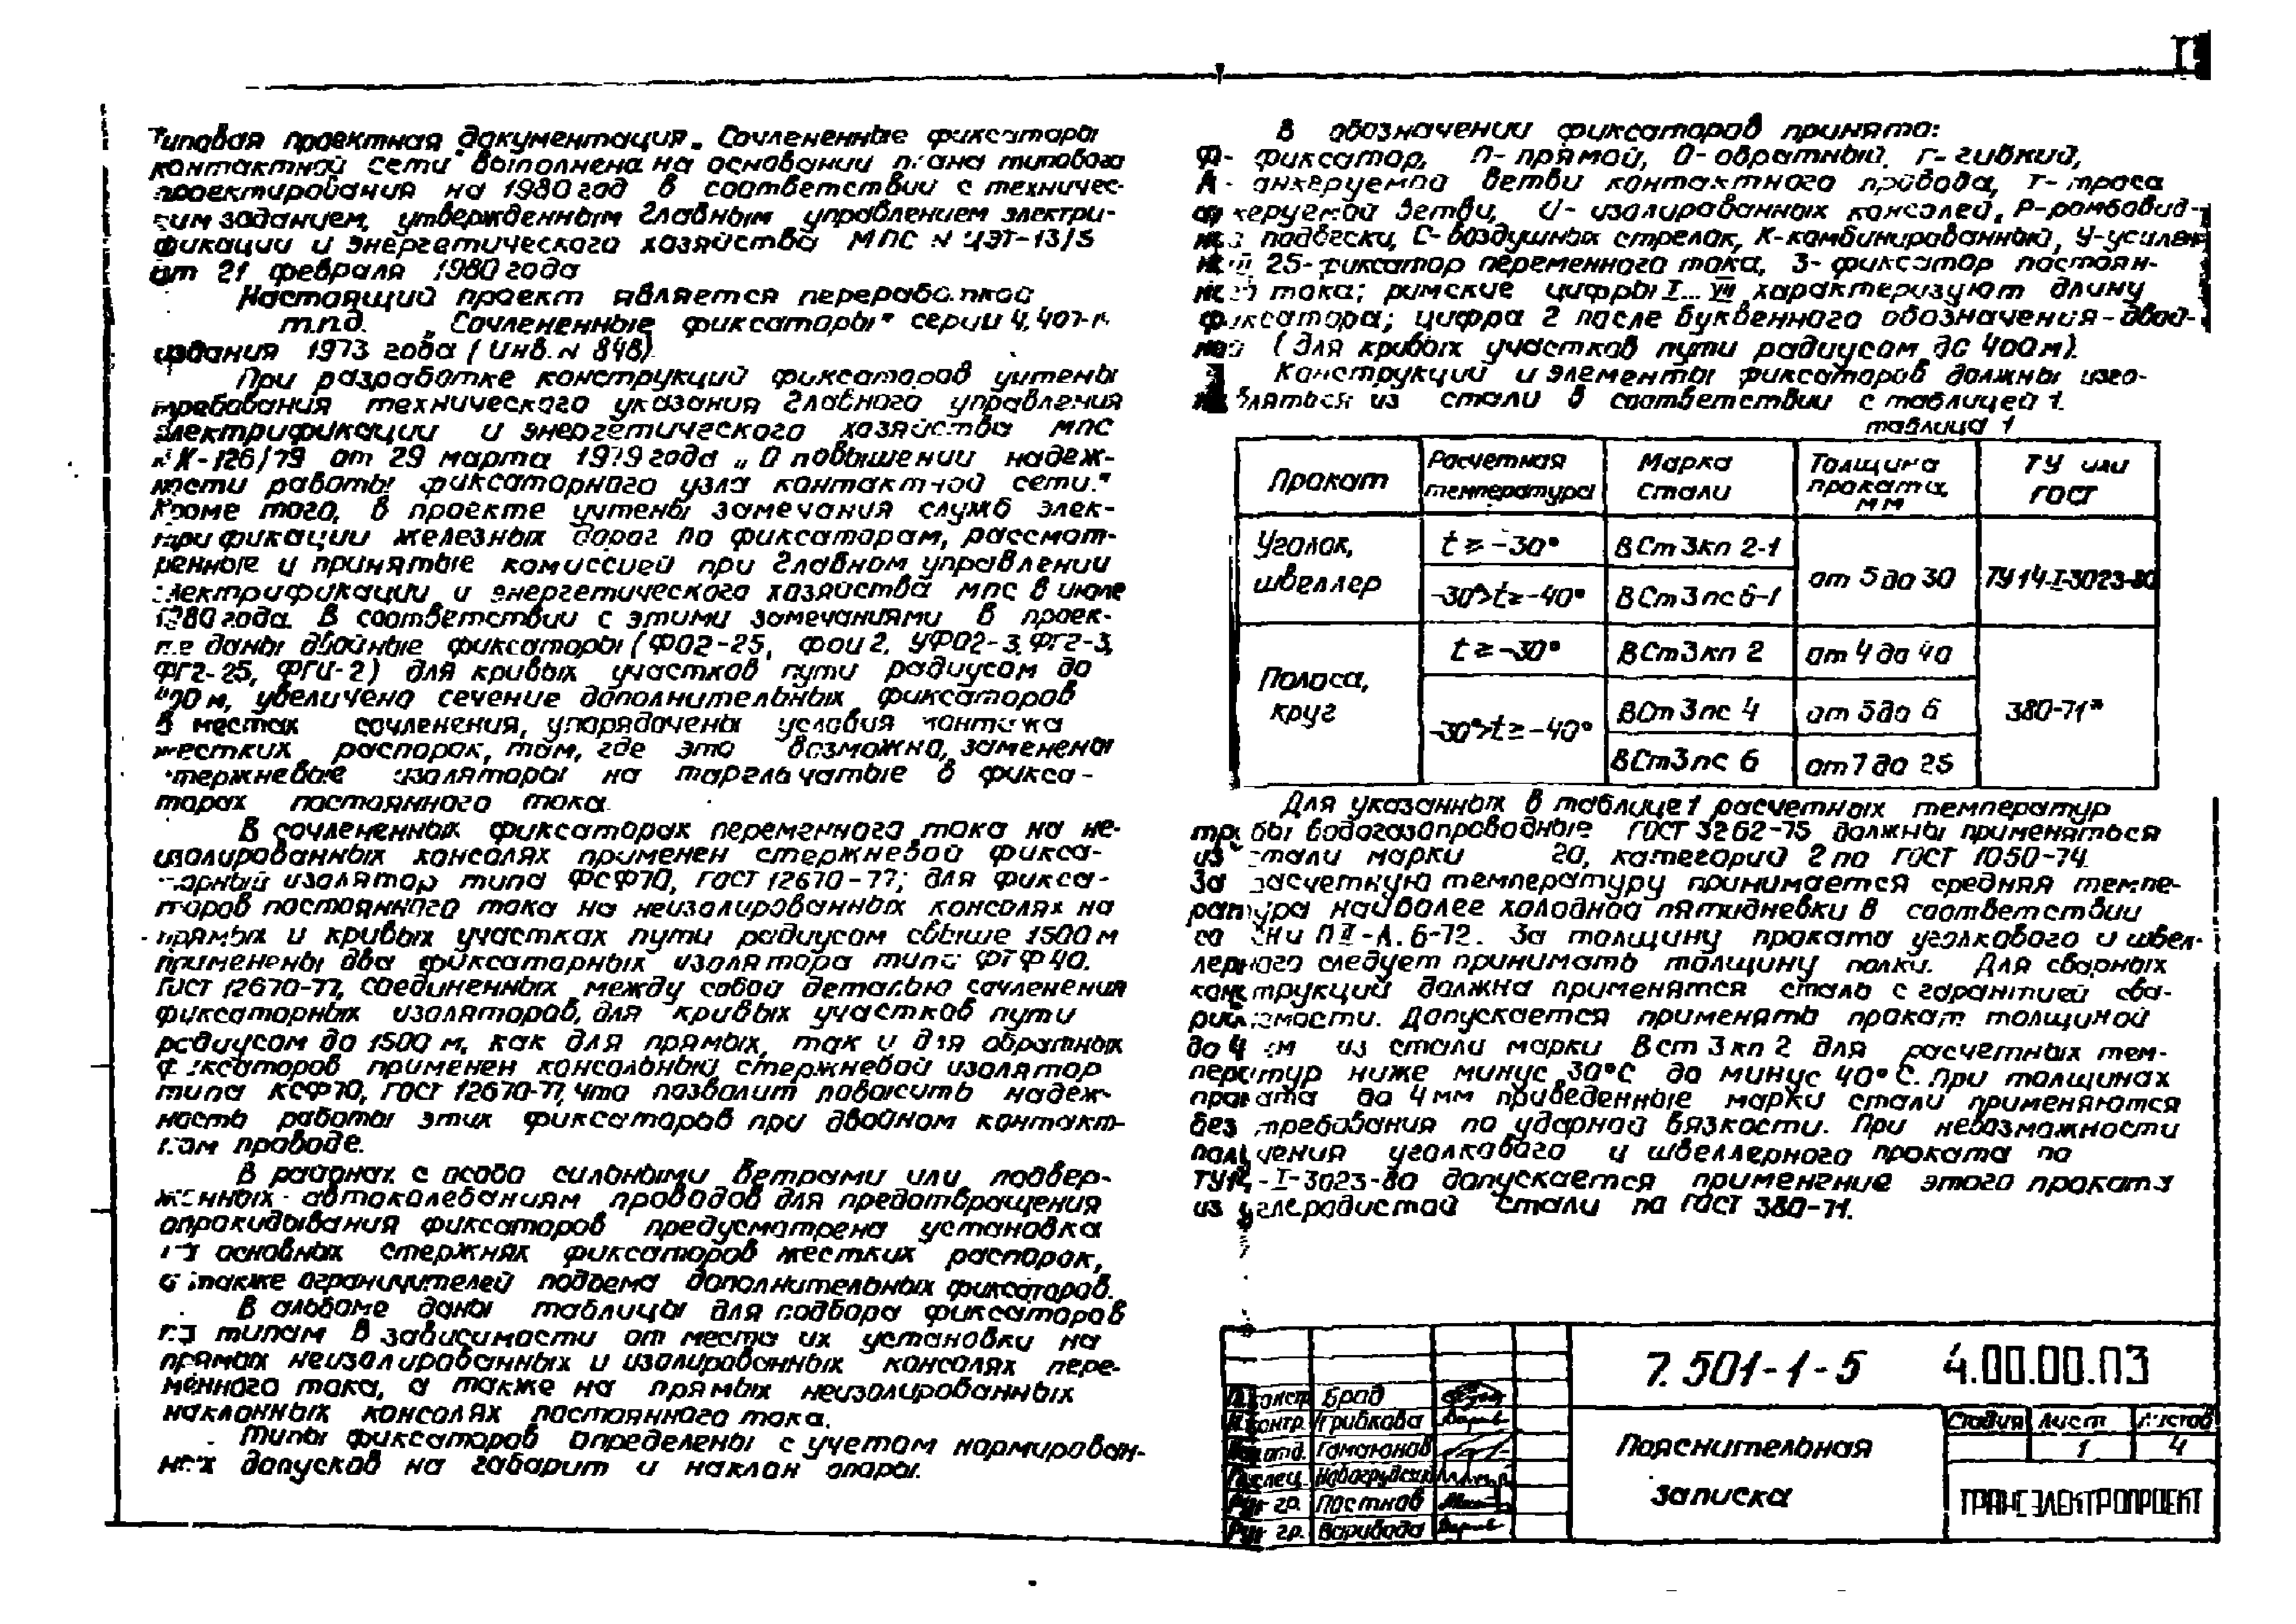 Типовая проектная документация „Сочлененные фиксаторы
контактной сети" выполнена на основании плана типового
проектирования на 1980 год в соответствии с техничес-
ким заданием, утвержденным Главным управлением электри-
фикации и энергетического хозяйства МПС N ЦЭТ-13/5
от 21 февраля 1980 года
Настоящий проект является переработкой
т.п.д. „Сочлененные фиксаторы" серии
издания 1973 года (Инв. N 848)
При разработке конструкций фиксаторов учтены
требования технического указания Главного управления
электрификации и энергетического хозяйства МПС
N К-126/79 от 29 марта 1979 года „О повышении надеж-
ности работы фиксаторного узла контактной сети."
Кроме того, в проекте учтены замечания служб элек-
трификации железных дорог по фиксаторам, рассмот-
ренные и принятые комиссией при Главном управлении
электрификации и энергетического хозяйства МПС в июле
1980 года. В соответствии с этими замечаниями в проек-
те даны двойные фиксаторы (ФО2-25, ФОИ2, УФО2-3, ФГ2-3,
ФГ2-25, ФГИ-2) для кривых участков пути радиусом до
400 м, увеличено сечение дополнительных фиксаторов
в местах сочленения, упорядочены условия монтажа
жестких распорок, там, где это возможно, заменены
стержневые изоляторы на тарельчатые в фикса-
торах постоянного тока.
В сочлененных фиксаторах переменного тока на не-
изолированных консолях применен стержневой фикса-
торный изолятор типа ФСФ70, ГОСТ 12670-77; для фикса-
торов постоянного тока на неизолированных консолях на
прямых и кривых участках пути радиусом свыше 1500 м
применены два фиксаторных изолятора типа ФТФ40.
ГОСТ 12670-77, соединенных между собой деталью сочленения
фиксаторных изоляторов, для кривых участков пути
радиусом до 1500 м, как для прямых, так и для обратных
фиксаторов применен консольный стержневой изолятор
типа КСФ70, ГОСТ 12670-77, что позволит повысить надеж-
ность работы этих фиксаторов при двойном контакт-
ном проводе.
В районах с особо сильными ветрами или подвер-
женных автоколебаниям проводов для предотвращения
опрокидывания фиксаторов предусмотрена установка
на основных стержнях фиксаторов жестких распорок,
а также ограничителей подъема дополнительных фиксаторов.
В альбоме даны таблицы для подбора фиксаторов
по типам в зависимости от места их установки на
прямых неизолированных и изолированных консолях пере-
менного тока, а также на прямых неизолированных
наклонных консолях постоянного тока.
Типы фиксаторов определены с учетом нормирован-
ных допусков на габарит и наклон опоры.
В обозначении фиксаторов принято:
Ф- фиксатор, П- прямой, О- обратный, Г- гибкий,
А- анкеруемой ветви контактного провода, Т- троса
анкеруемой ветви, И- изолированных консолей, Р-ромбовид-
ной подвески, С- воздушных стрелок, К-комбинированный, У-усилен-
ный 25- фиксатор переменного тока, 3- фиксатор постоян-
ного тока; римские цифры I... VII характеризуют длину
фиксатора; цифра 2 после буквенного обозначения - двой-
ной (для кривых участков пути радиусом до 400 м).
Конструкций и элементы фиксаторов должны изго-
вляться из стали в соответствии с таблицей 1.
таблица 1
Прокат	Расчетная температура	Марка стали	Толщина проката, мм	ТУ или ГОСТ
Уголок, швеллер	t ≥ -30°	ВСт3кп 2-1	от 5 до 30	ТУ14-I-3023-80
-30°>t≥-40°	ВСт3пс6-1
Полоса, круг	t ≥ -30°	ВСт3кп 2	от 4 до 40	380-71*
-30°>t≥-40°	ВСт3пс 4	от 5 до 6
ВСт3пс 6	от 7 до 25
Для указанных в таблице 1 расчетных температур
трубы водогазопроводные ГОСТ 3262-75 должны применяться
из стали марки 20, категорий 2 по ГОСТ 1050-74.
За расчетную температуру принимается средняя темпе-
ратура наиболее холодной пятидневки в соответствии
со СНиП II-А.6-72. За толщину проката уголкового и швел-
лерного следует принимать толщину полки. Для сварных
конструкций должна применятся сталь с гарантией сва-
риваемости. Допускается применять прокат толщиной
до 4 мм из стали марки ВСт3кп2 для расчетных тем-
ператур ниже минус 30°С до минус 40°С. При толщинах
проката до 4 мм приведенные марки стали применяются
без требования по ударной вязкости. При невозможности
получения уголкового и швеллерного проката по
ТУ14-I-3023-80 допускается применение этого проката
из углеродистой стали по ГОСТ 380-71.
7.501-1-5 4.00.00.ПЗ
Пояснительная
записка
Стадия Лист Листов
1 4
ТРАНСЭЛЕКТРОПРОЕКТ
констр Брод
Н.контр. Грибкова
отд. Гамаюнов
Гл.спец. Новогрудский
Рук гр. Постнов
Рук гр. Варивода